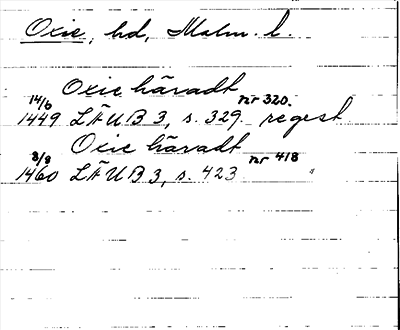 Oxie, hd, Malm. l.
Oxie häradt
14/6 nr 320.
1449 LÄUB 3, s. 329. regest
Oxie häradt
8/8 nr 418
1460 LÄUB 3, s. 423 "